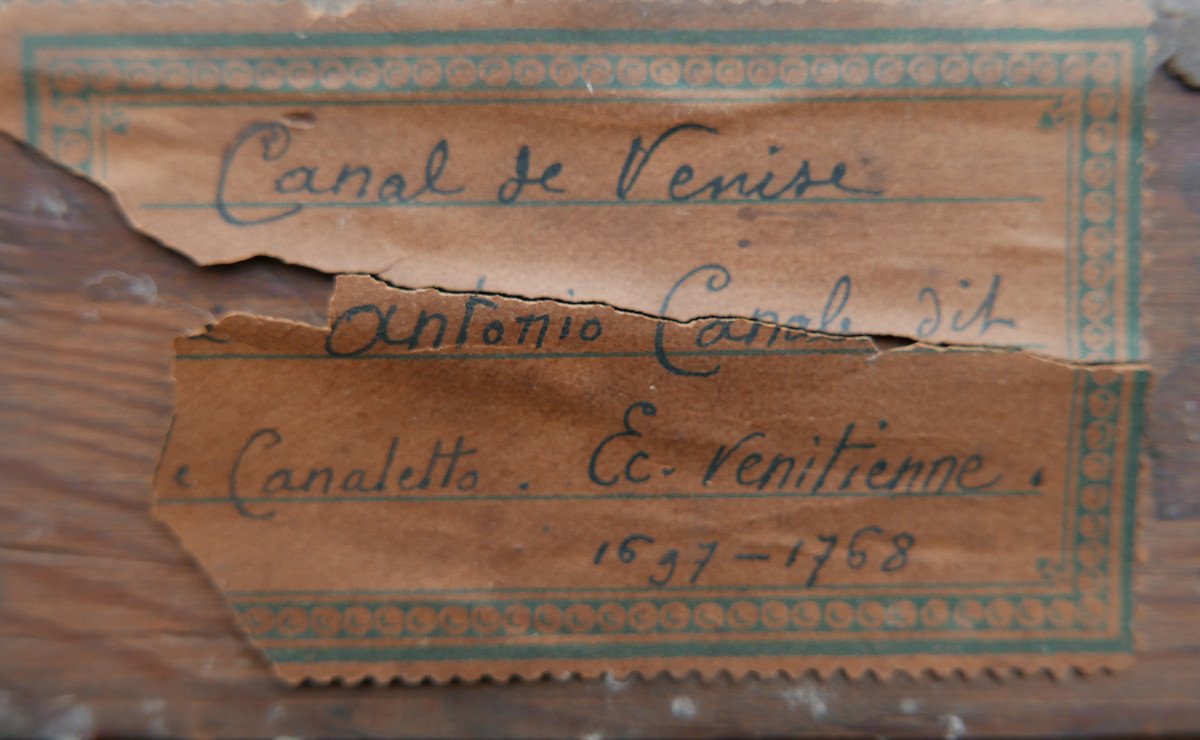 Canal de Venise
Antonio Canale dit
Canaletto. Ec. venitienne.
1697-1768